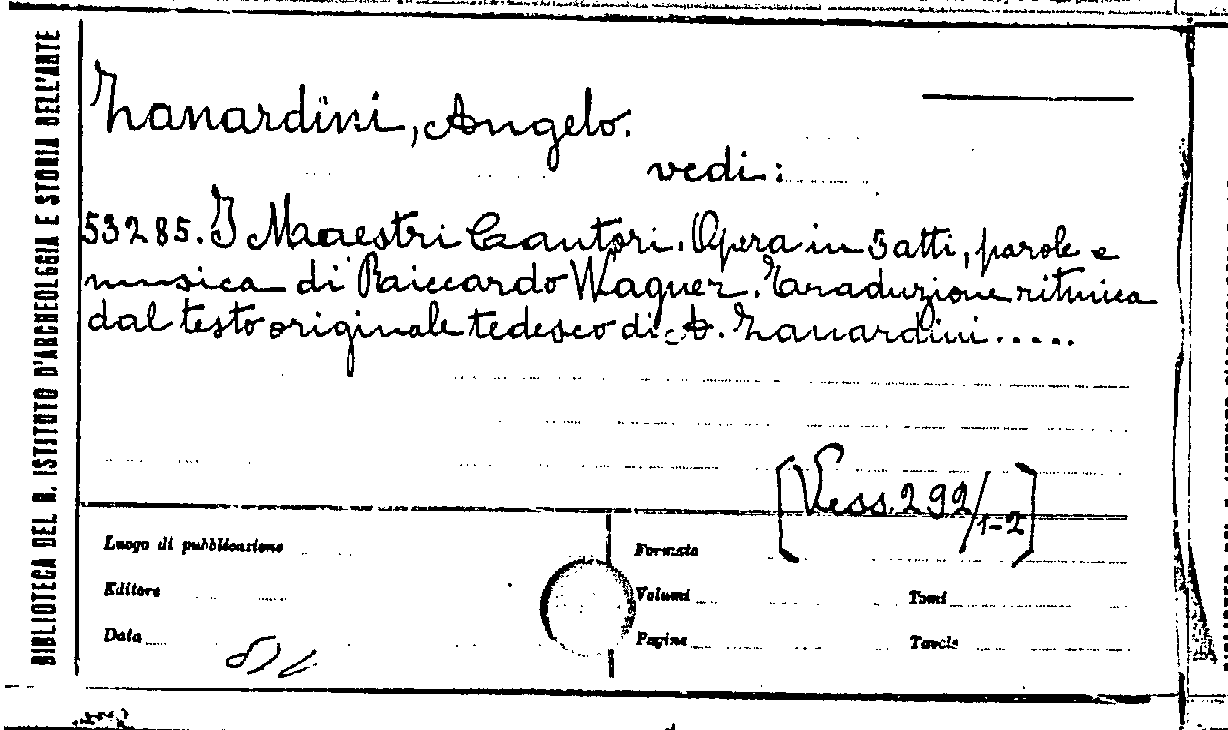 BIBLIOTECA DEL R. ISTITUTO D'ARCHEOLOGIA E STORIA DELL'ARTE
Zanardini, Angelo.
vedi:
53285. I Maestri Cantori. Opera in 3 atti, parole e
musica di Riccardo Wagner. Traduzione ritmica
dal testo originale tedesco di A. Zanardini.....
[Vess. 292/1-2]
Luogo di pubblicazione
Formato
Editore
Volumi
Tomi
Data
Pagine
Tavole